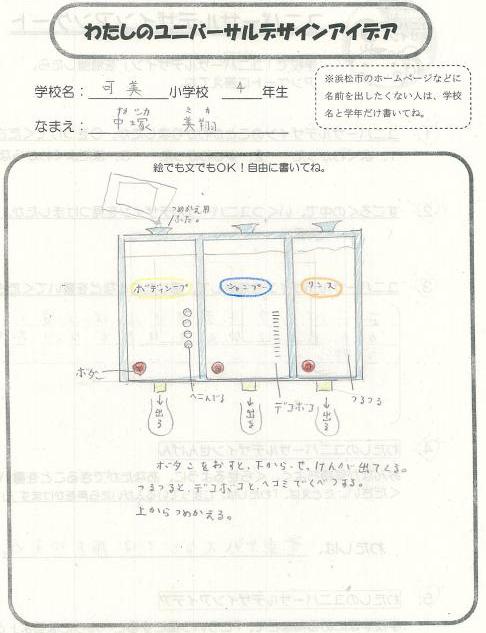 わたしのユニバーサルデザインアイデア
学校名：可美小学校 4年生
なまえ：中塚 美翔
なかつか みか
※浜松市のホームページなどに
名前を出したくない人は、学校
名と学年だけ書いてね。
絵でも文でもOK！自由に書いてね。
つめかえ用
ふた。
ボディソープ
シャンプー
リンス
ボタン
へこんでる
デコボコ
つるつる
出る
出る
出る
ボタンをおすと、下から、せっけんが出てくる。
つるつると、デコボコと、ヘコミでくべつする。
上からつめかえる。